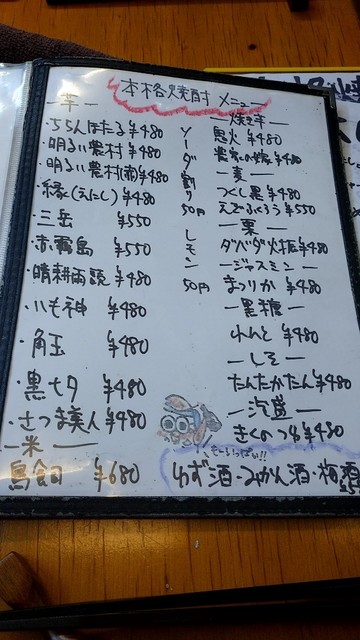 本格焼酎 メニュー
ー芋ー
・ちらんほたる ¥480
・明るい農村 ¥480
・明るい農村(赤) ¥480
・縁(えにし) ¥480
・三岳 ¥550
・赤霧島 ¥550
・晴耕雨読 ¥480
・八千神 ¥480
・角玉 ¥480
・黒七夕 ¥480
・さつま美人 ¥480
ー米ー
鳥飼 ¥680
ソーダ割り 50円
レモン 50円
ー焼き芋ー
黒火 ¥480
農家の嫁 ¥480
ー麦ー
つくし黒 ¥480
えでふくろう ¥550
ー栗ー
ダバダ火振 ¥480
ージャスミンー
まつりか ¥480
ー黒糖ー
れんと ¥480
ーしそー
たんたかたん ¥480
ー泡盛ー
きくのつゆ ¥480
ゆず酒・みかん酒・梅酒